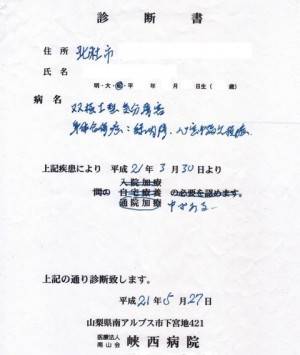 診断書
住所 北杜市
氏名
明・大・昭・平 年 月 日生( 歳)
病名 双極Ⅱ型気分障害
身体合併症:緑内障、心室中隔欠損症
上記疾患により 平成21年3月30日より
入院加療
間の 自宅療養 の必要を認めます。
通院加療 中である
上記の通り診断致します。
平成21年5月27日
山梨県南アルプス市下宮地421
医療法人 南山会 峡西病院